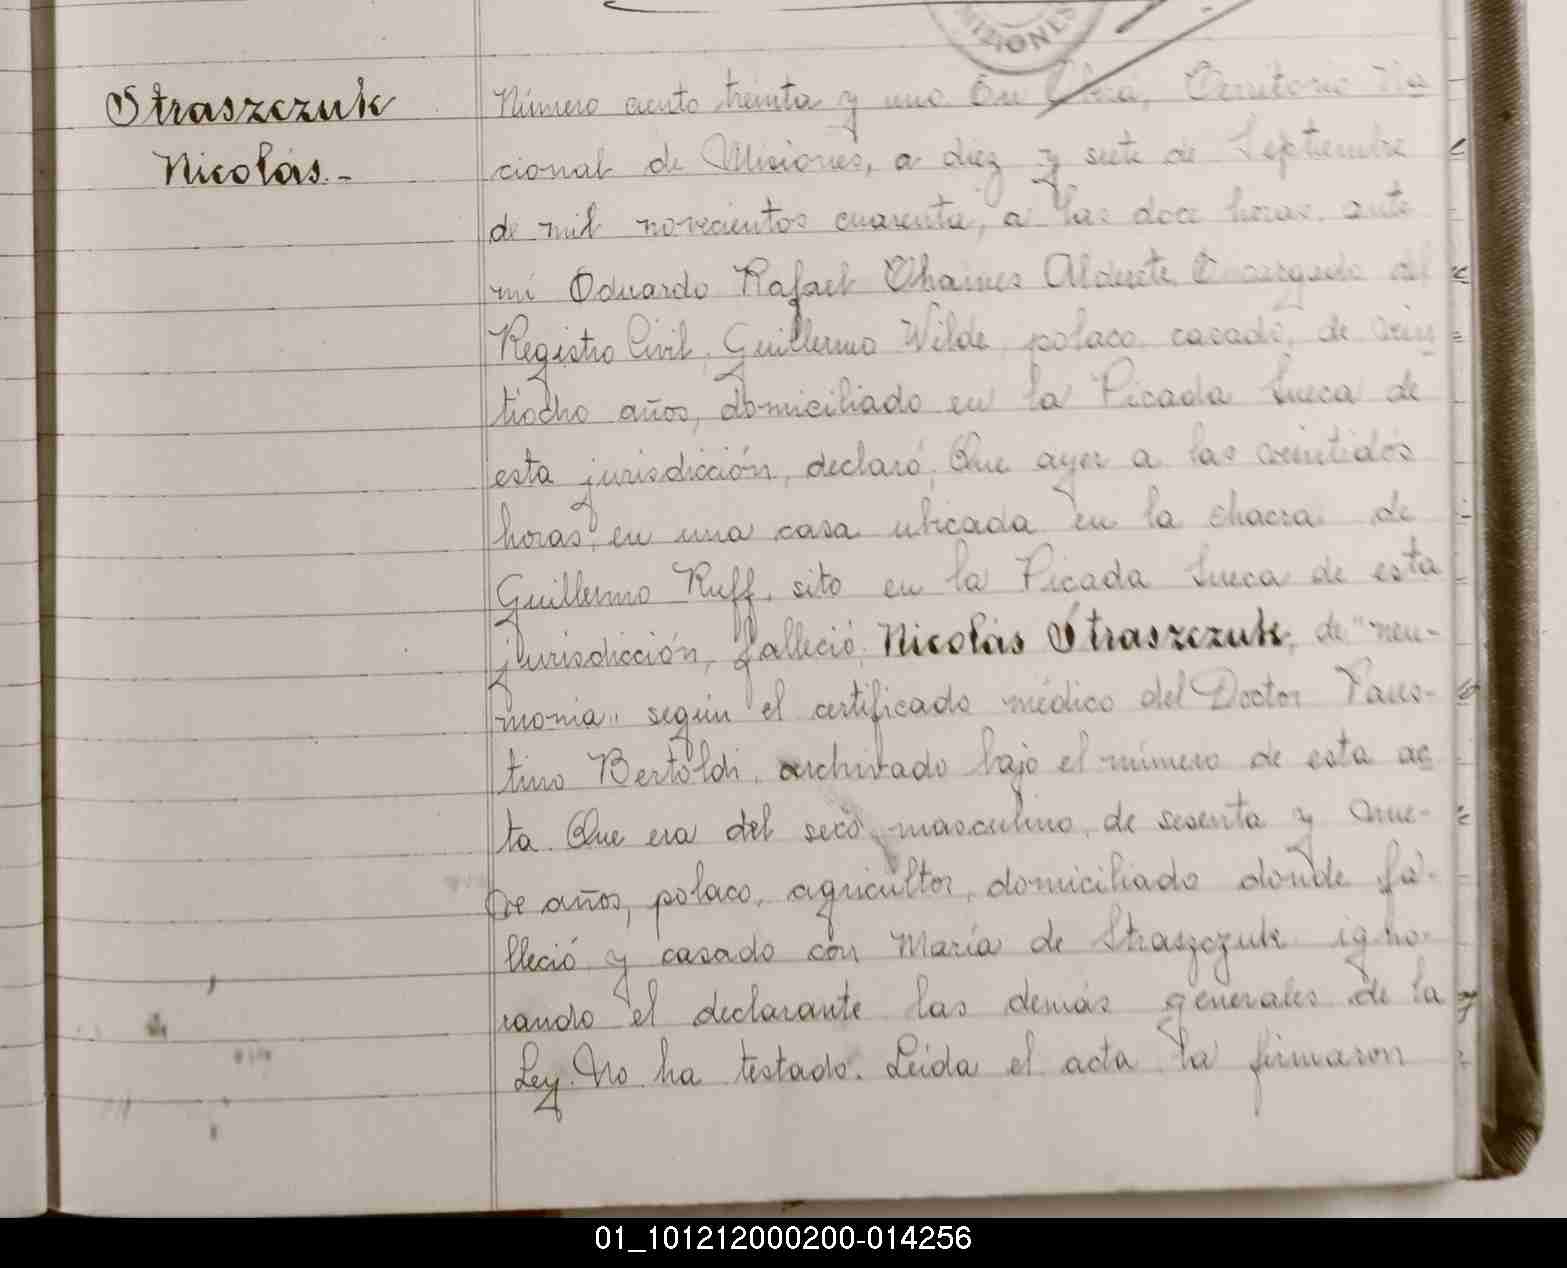 MISIONES
Straszczuk
Nicolás.-
Número ciento treinta y uno En Oberá, Territorio Na
cional de Misiones, a diez y siete de Septiembre
de mil novecientos cuarenta, a las doce horas, ante
mi Eduardo Rafael Chaines Alderete Encargado del
Registro Civil, Guillermo Wilde, polaco, casado, de vein
tiocho años, domiciliado en la Picada Sueca de
esta jurisdicción, declaró; Que ayer a las veintidós
horas, en una casa ubicada en la chacra de
Guillermo Ruff, sito en la Picada Sueca de esta
jurisdicción, falleció, Nicolás Straszczuk, de "neu-
monia" según el certificado médico del Doctor Faus-
tino Bertoldi, archivado bajo el número de esta ac
ta. Que era del sexo masculino, de sesenta y nue-
ve años, polaco, agricultor, domiciliado donde fa-
lleció y casado con María de Straszczuk igno-
rando el declarante las demás generales de la
Ley. No ha testado. Leida el acta la firmaron
01_101212000200-014256